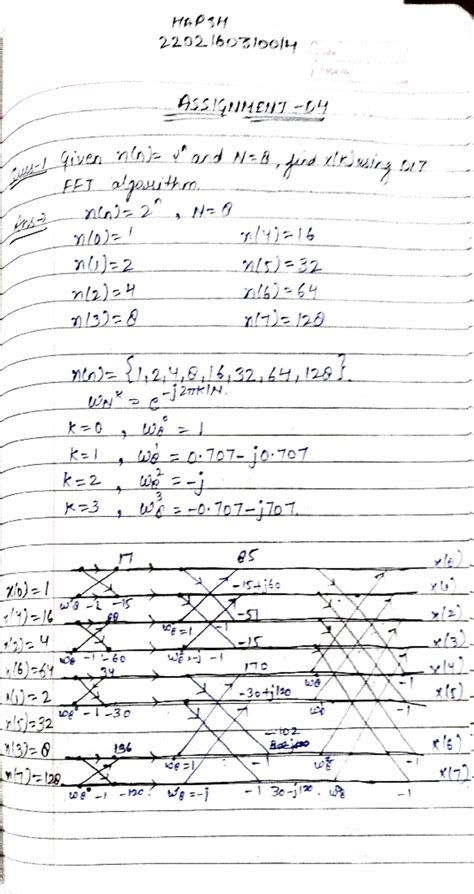 HARSH
2202160310014
ASSIGNMENT-04
Ques-1 Given x(n)= 2ⁿ and N=8, find X(K) using DIT
FFT algorithm.
Ans→ x(n)=2ⁿ , N=8
x(0)=1 x(4)=16
x(1)=2 x(5)=32
x(2)=4 x(6)=64
x(3)=8 x(7)=128
x(n)= {1,2,4,8,16,32,64,128}.
W_N^k = e^-j2πk/N.
k=0 , W_8^0 = 1
k=1 , W_8^1 = 0.707-j0.707
k=2 , W_8^2 = -j
k=3 , W_8^3 = -0.707-j707.
17 85 x(0)
x(0)=1 -15+j60 x(1)
W_8^0 -1 -15
x(4)=16 68 W_8^0=1 -1 -51 x(2)
x(2)=4 -15 x(3)
W_8^0 -1 -60 W_8^2=-j -1
x(6)=64 34 170 x(4)
x(1)=2 -30+j120 x(5)
W_8^0 -1 -30
x(5)=32 -102
x(3)=8 136 x(6)
W_8^0=1 -1 -1
x(7)=128 x(7)
W_8^0 -1 -120 W_8^2=-j -1 30-j120. -1